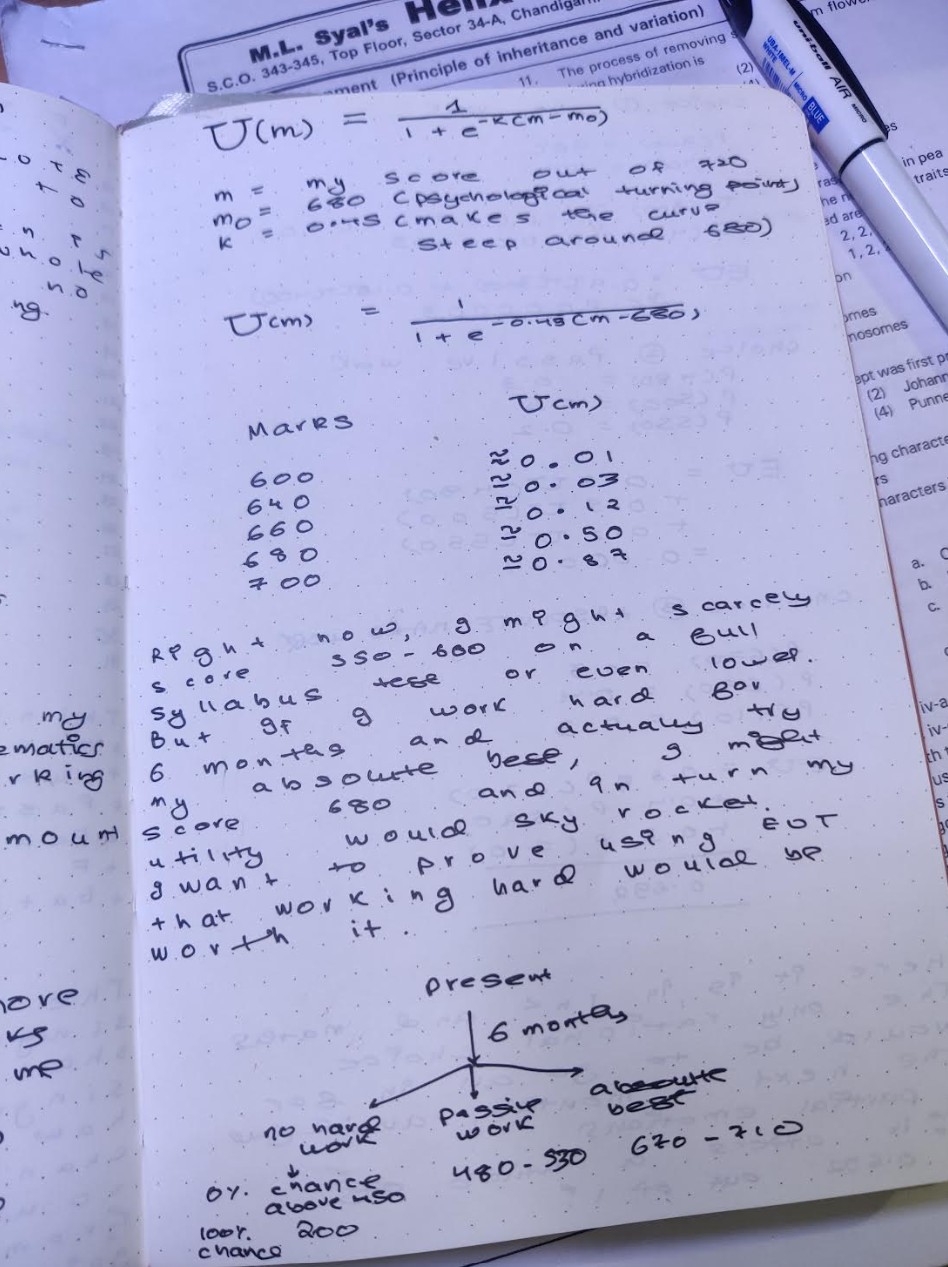 M.L. Syal's Helix
S.C.O. 343-345, Top Floor, Sector 34-A, Chandigarh
(Principle of inheritance and variation)
11. The process of removing
hybridization is
(2)
uni-ball AIR MICRO
BLUE
U(m) = 1 / 1 + e^-k(m-m0)
m = my score out of 720
m0 = 680 (psychological turning point)
k = 0.45 (makes the curve
steep around 680)
U(m) = 1 / 1 + e^-0.45(m-680)
Marks U(m)
600 ≈ 0.01
640 ≈ 0.03
660 ≈ 0.12
680 ≈ 0.50
700 ≈ 0.87
Right now, I might scarcely
score 550-600 on a full
syllabus test or even lower.
But if I work hard for
6 months and actually try
my absolute best, I might
score 680 and in turn my
utility would sky rocket.
I want to prove using EUT
that working hard would be
worth it.
present
6 months
no hard work
passive work
absolute best
0% chance above 450
480-530
670-710
100% chance 200
my
ematics
rking
mount
more
me
ng.
in pea
traits
2, 2,
1, 2,
omes
nosomes
ept was first
(2) Johann
(4) Punne
ng characte
rs
haracters
a.
b.
c.
iv-a
iv-